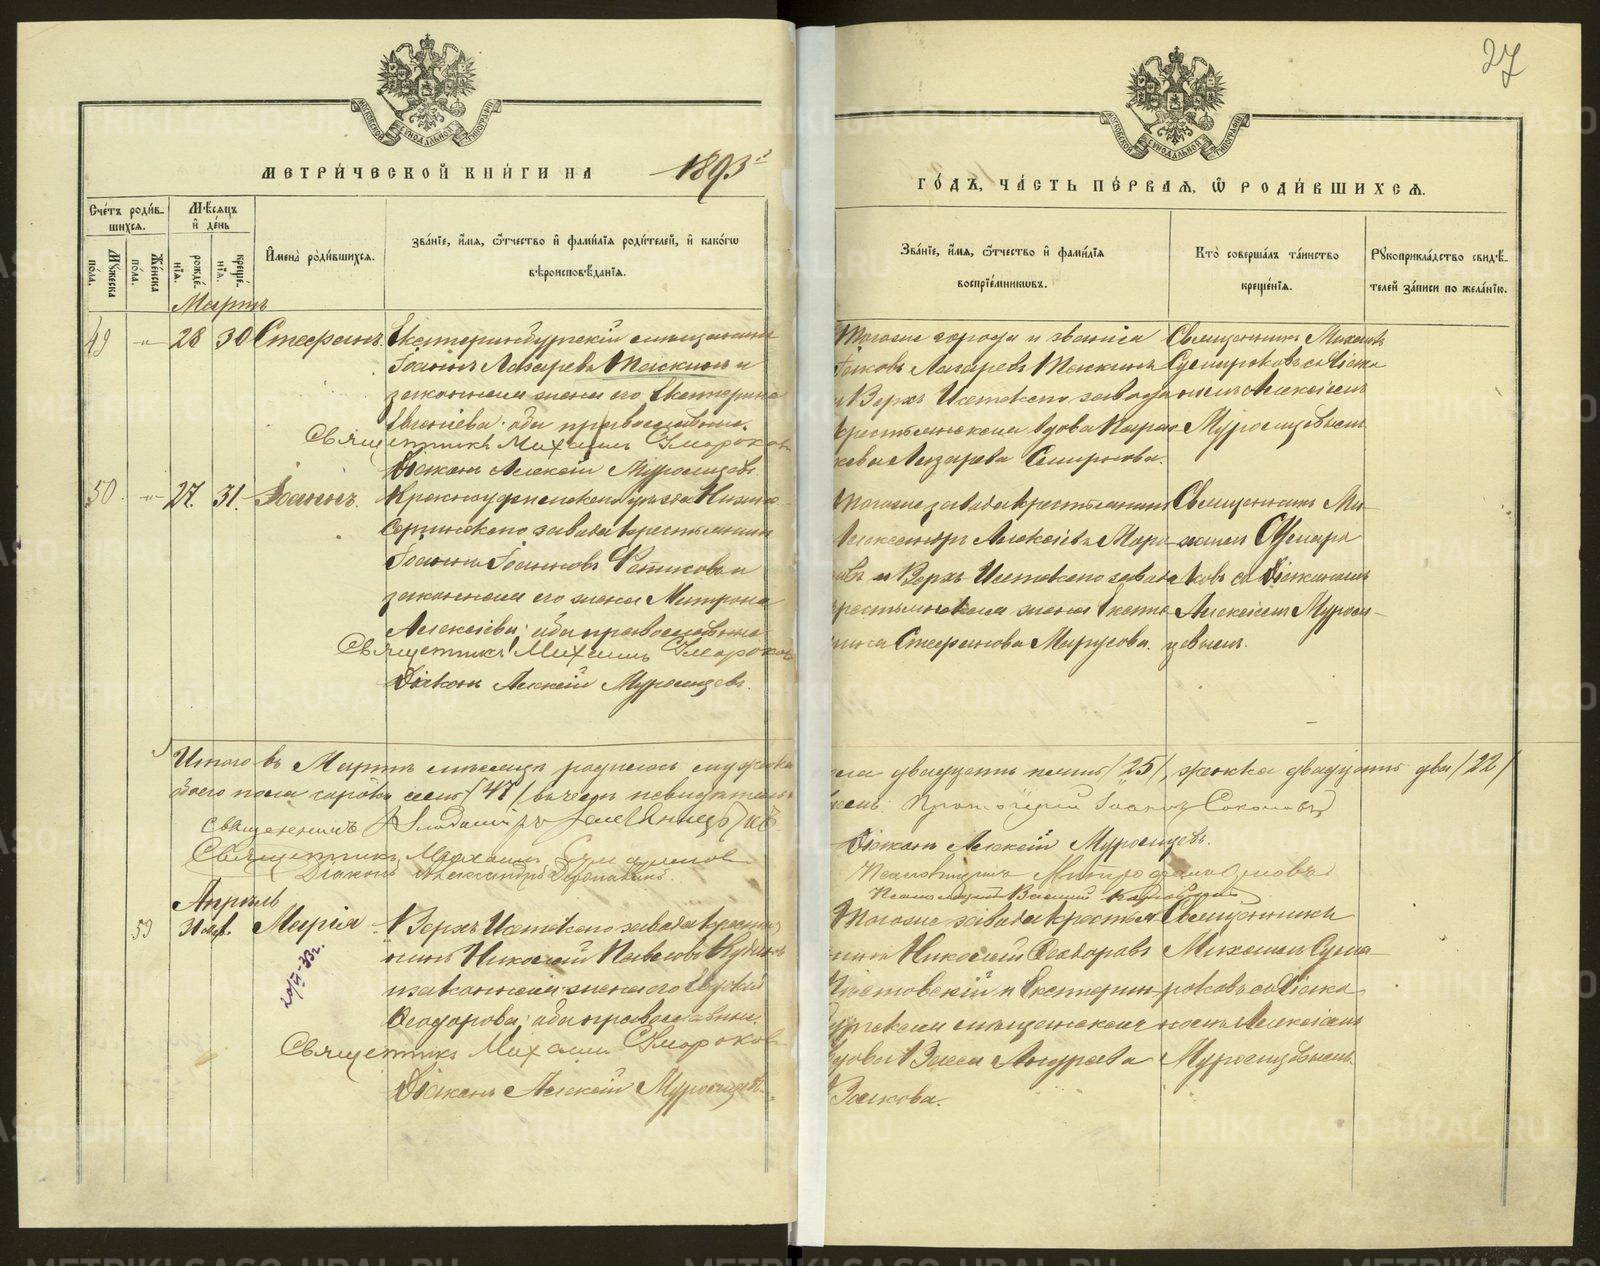 27
МОСКОВСКОЙ СѴНОДАЛЬНОЙ ТИПОГРАФІИ
МОСКОВСКОЙ СѴНОДАЛЬНОЙ ТИПОГРАФІИ
МЕТРИ́ЧЕСКОЙ КНИ́ГИ НА 1893й
ГО́ДЪ, ЧА́СТЬ ПЕ́РВАЯ, Ѡ҆ РОДИ́ВШИХСЯ.
Сче́тъ роди́в-
шихся.
Мѣ́сяцъ
и҆ де́нь
Му́жеска
по́ла.
Же́нска
по́ла.
рожде́-
нія.
креще́-
нія.
И҆мена̀ роди́вшихся.
Зва́ніе, и҆́мя, ѻ҆́тчество и҆ фами́лія роди́телей, и҆ како́гѡ
вѣроисповѣ́данія.
Зва́ніе, и҆́мя, ѻ҆́тчество и҆ фами́лія
воспріе́мникѡвъ.
Кто̀ соверша́лъ та́инство
креще́нія.
Рукоприкла́дство свидѣ́-
телей за́писи по жела́нію.
Мартъ
49 -"- 28 30 Стефанъ. Екатеринбургскій мѣщанинъ
Іоаннъ Лазаревъ Таскинъ и
законная жена его Екатерина
Евгеніева; оба православные.
Священникъ Михаилъ Смароковъ
Діаконъ Алексій Муромцевъ
Тогоже города и званія
Іаковъ Лазаревъ Таскинъ
и Верхъ Исетскаго завода
крестьянская вдова Парас
кева Лазарева Смирнова.
Священникъ Михаилъ
Сумароковъ съ Діако
номъ Алексіемъ
Муромцевымъ
50. -"- 27. 31. Іоаннъ. Красноуфимскаго уѣзда Нижне-
Сергинскаго завода крестьянинъ
Іоаннъ Іоанновъ и
законная его жена Матрона
Алексіева; оба православные
Священникъ Михаилъ Смароковъ
Діаконъ Алексій Муромцевъ.
Тогоже завода крестьянинъ
Александръ Алексіевъ
и Верхъ Исетскаго завода
крестьянская жена Екате
рина Стефанова
Священникъ Ми-
хаилъ Сумаро
ковъ съ Діакономъ
Алексіемъ Муром-
цевымъ.
Итого въ Мартѣ мѣсяцѣ родилось мужска
го пола двадцать пять /25/, женска двадцать два /22/
обоего пола сорокъ семь /47/
Протоіерей Іоаннъ Соколовъ
Священникъ Владиміръ
Священникъ Михаилъ Сумароковъ
Діаконъ Алексій Муромцевъ.
Діаконъ Александръ
Псаломщикъ
Псаломщикъ Василій
Апрѣль
Марія Верхъ Исетскаго завода крестья
нинъ Николай Павловъ
и законная жена его
Ѳеодорова; оба православные.
Священникъ Михаилъ Смароковъ
Діаконъ Алексій Муромцевъ.
Тогоже завода крестья
нинъ Николай Ѳеодоровъ
и Екатерин
бургская мѣщанская
вдова Васса Андреева
Волкова.
Священникъ
Михаилъ Сума-
роковъ съ Діако
номъ Алексіемъ
Муромцевымъ.
METRIKI.GASO-URAL.RU